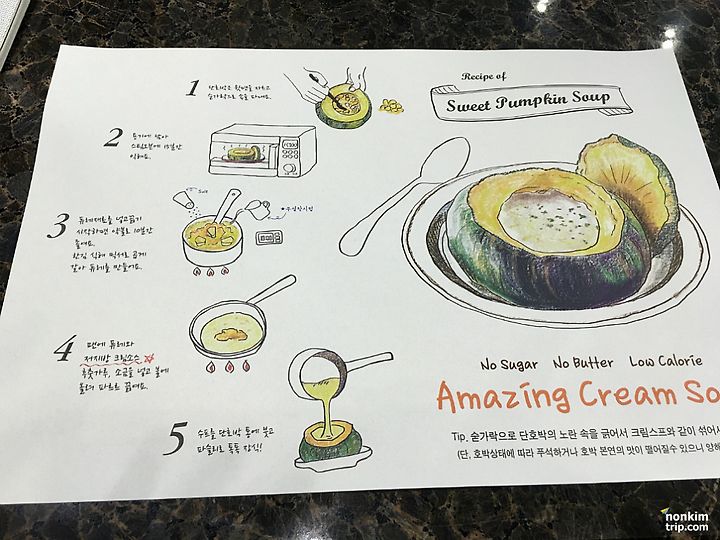 Recipe of
Sweet Pumpkin Soup
1
단호박 윗면을 자르고
숟가락으로 속을 파내요.
2
용기에 담아
스팀오븐에 15분간
익혀요.
Salt
3
퓨레재료를 넣고끓기
시작하면 약불로 10분간
끓여요.
한김 식혀 믹서로 곱게
갈아 퓨레를 만들어요.
4
팬에 퓨레와
저지방 크림소스
후춧가루, 소금을 넣고 불에
올려 파르르 끓여요.
5
수프를 단호박 통에 붓고
파슬리로 톡톡 장식!
No Sugar No Butter Low Calorie
Amazing Cream So
Tip. 숟가락으로 단호박의 노란 속을 긁어서 크림스프와 같이 섞어서
(단, 호박상태에 따라 푸석하거나 호박 본연의 맛이 떨어질수 있으니 양해
nonkim
trip.com